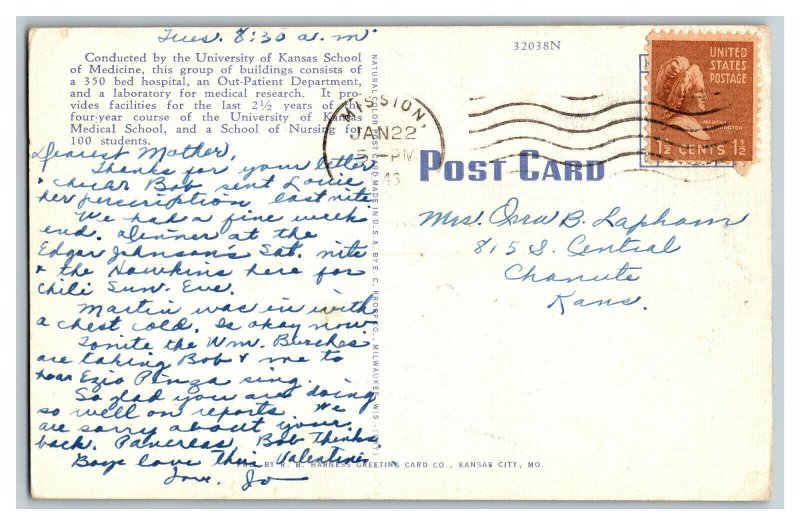 Tues. 8:30 a.m.
Conducted by the University of Kansas School
of Medicine, this group of buildings consists of
a 350 bed hospital, an Out-Patient Department,
and a laboratory for medical research. It pro-
vides facilities for the last 2½ years of the
four-year course of the University of Kansas
Medical School, and a School of Nursing for
100 students.
Dearest Mother,
Thanks for your letter
Bob sent Louie
her perscription last nite.
We had a fine week
end. Dinner at the
Edgar Johnson's Sat. nite
& the Hawkins here for
Chili Sun. Eve.
Martin was in with
a chest cold. Is okay now
Tonite the Wm. Burches
are taking Bob & me to
hear Ezio Pinza sing.
So glad you are doing
so well on reports. We
are sorry about your
back. Pancreas, Bob thinks
Boys love their Valentines.
Love, Jo
NATURAL COLOR POST CARD MADE IN U.S.A. BY E. C. KROPP CO., MILWAUKEE, WIS.
BY R. B. HARNESS GREETING CARD CO., KANSAS CITY, MO.
32038N
MISSION,
JAN 22
5 - PM
46
UNITED
STATES
POSTAGE
MARTHA
WASHINGTON
1½ CENTS 1½
POST CARD
Mrs. Orra B. Lapham
815 S. Central
Chanute
Kans.